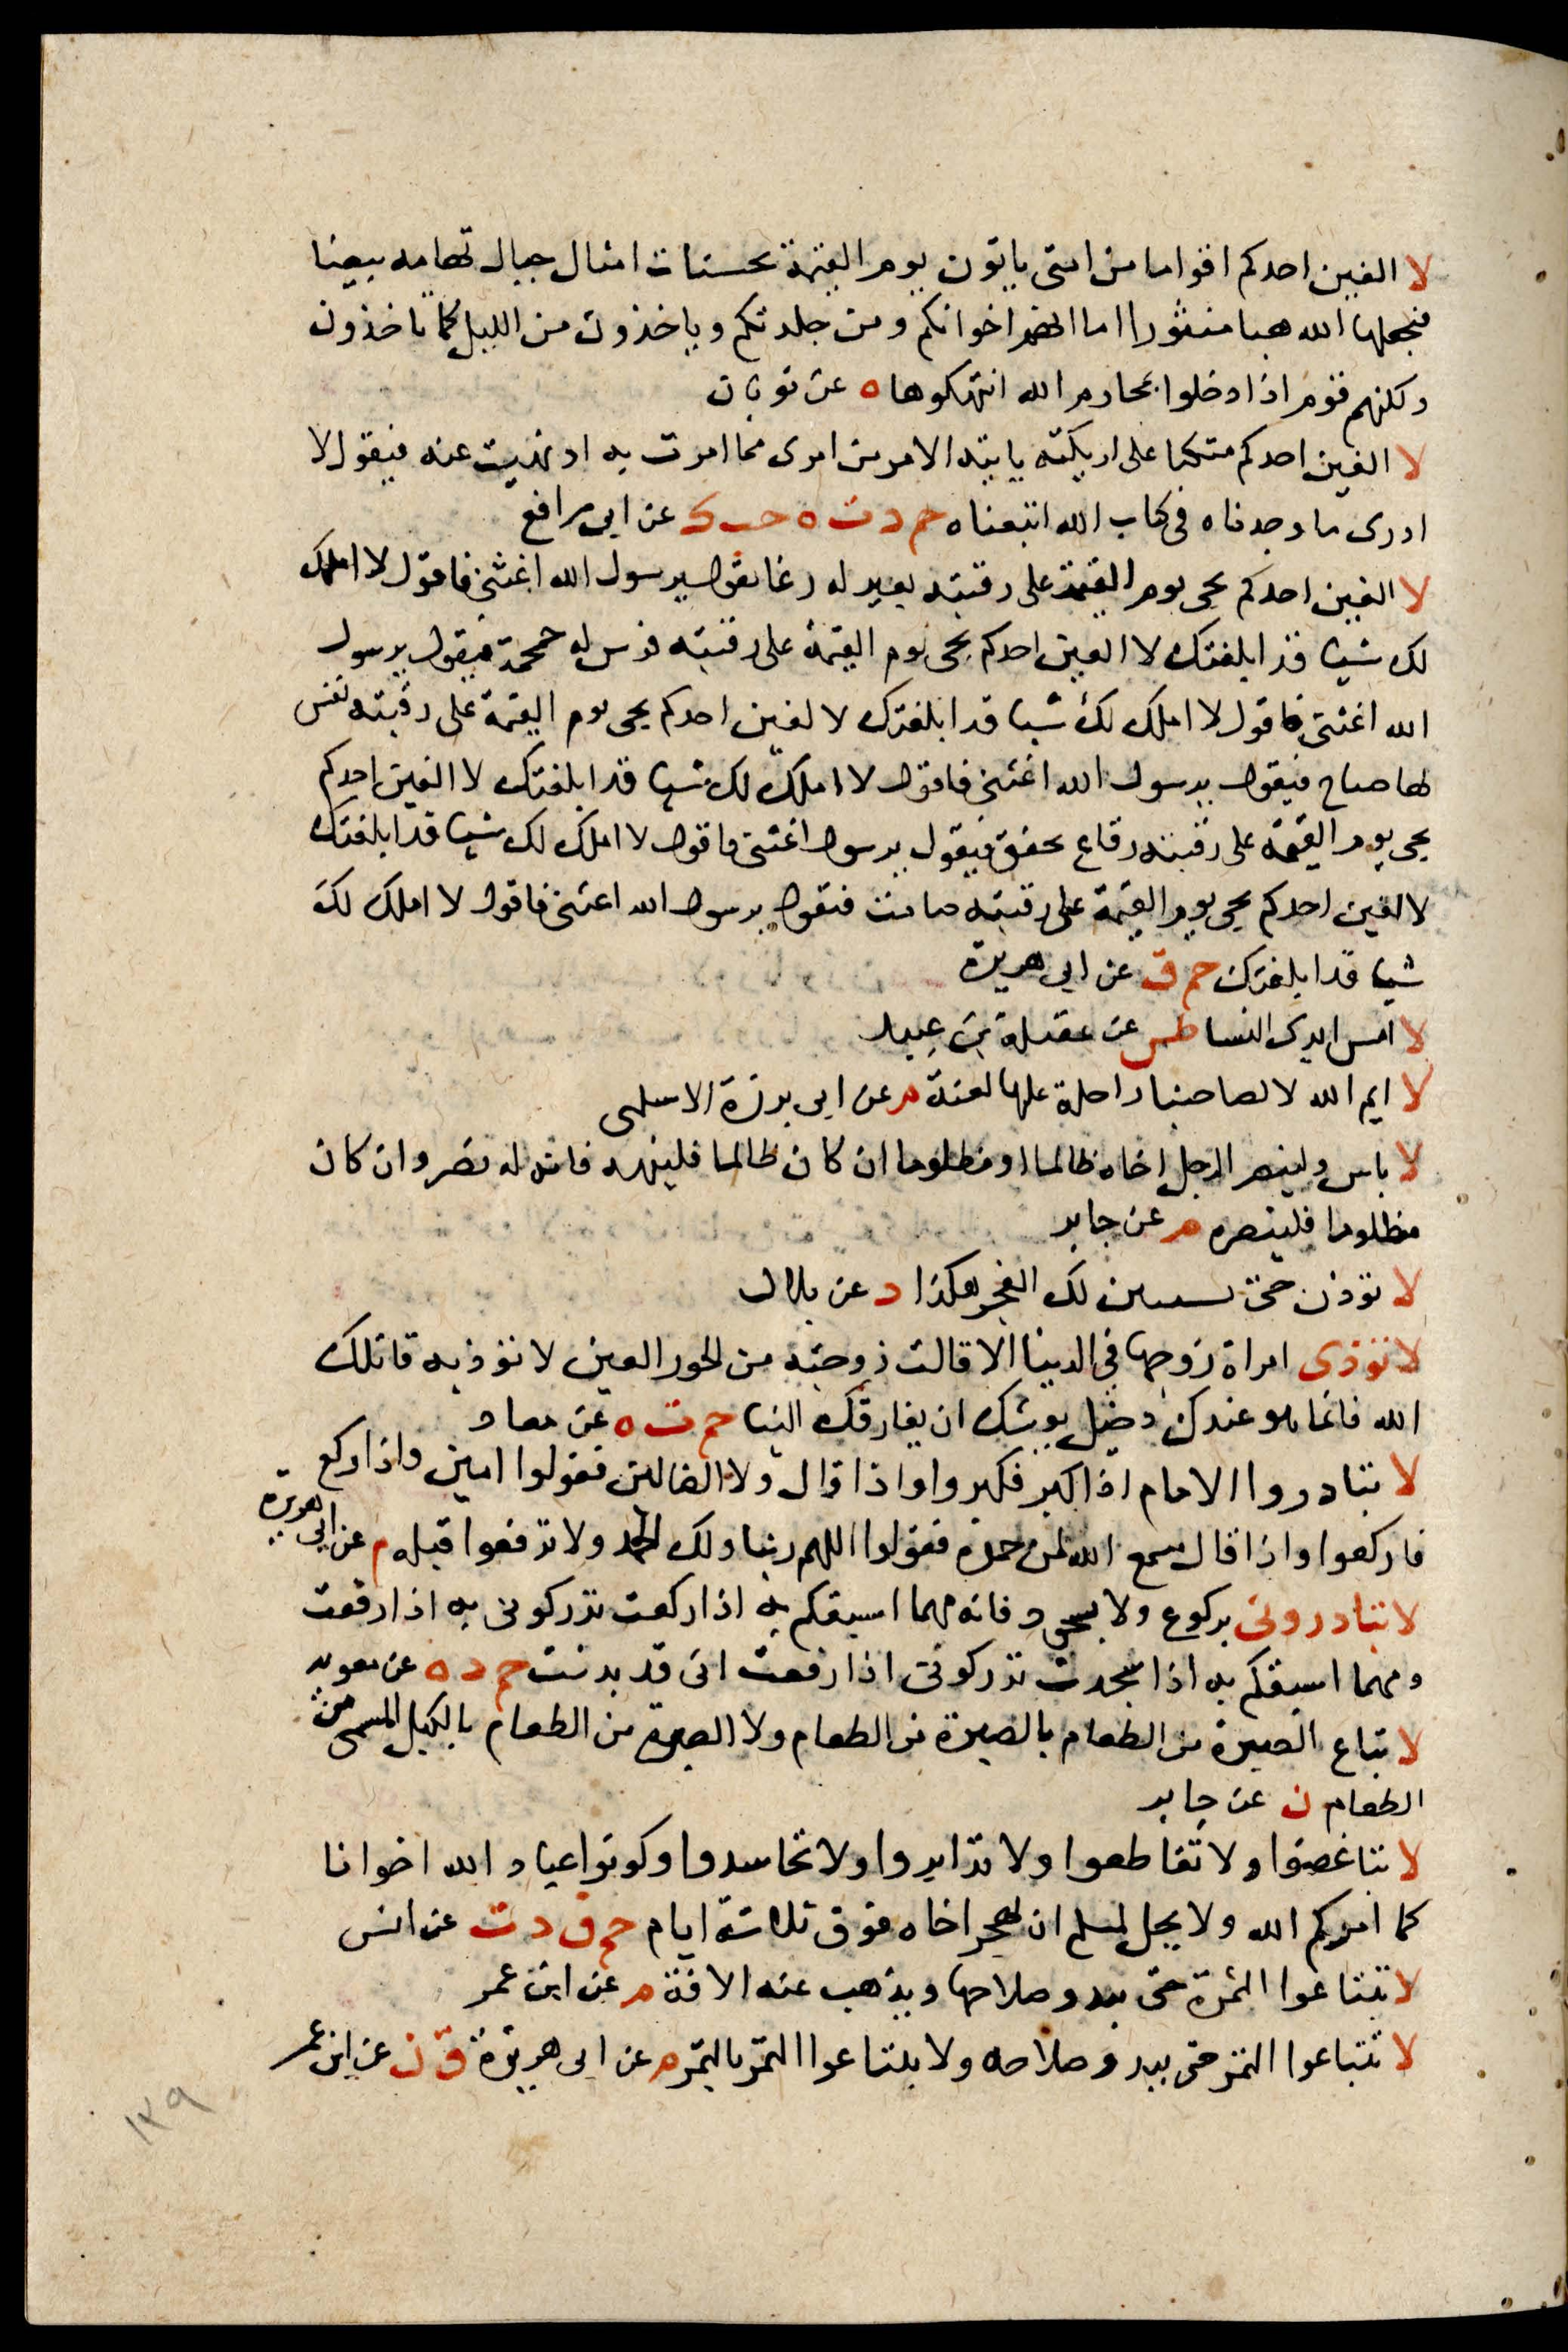 لا الفين احدكم اقواما من امتى ياتون يوم القيمة بحسنات امثال جبال تهامه بيضا
فيجعلها الله هبا منثورا اما انهم اخوانكم ومن جلدتكم وياخذون من الليل كما تاخذون
ولكنهم قوم اذا ادخلوا بمحارم الله انتهكوها ه عن ثوبان
لا الفين احدكم متكيا على اريكته ياتيه الامر من امرى مما امرت به او نهيت عنه فيقول لا
ادرى ما وجدناه فى كتاب الله اتبعناه حم د ت ه حب ك عن ابى رافع
لا الفين احدكم يجى يوم القيمة على رقبته بعير له رغا يقول يرسول الله اغثنى فاقول لا املك
لك شيا قد ابلغتك لا الفين احدكم يجى يوم القيمة على رقبته فرس له حمحمة فيقول يرسول
الله اغثنى فاقول لا املك لك شيا قد ابلغتك لا لفين احدكم يجى يوم القيمة على رقبته نفس
لها صياح فيقول يرسول الله اغثنى فاقول لا املك لك شيا قد ابلغتك لا الفين احدكم
يجى يوم القيمة على رقبته رقاع تخفق فيقول يرسول اغثنى فاقول لا املك لك شيا قد ابلغتك
لا الفين احدكم يجى يوم القيمة على رقبته صامت فيقول يرسول الله اغثنى فاقول لا املك لك
شيا قد ابلغتك حم ق عن ابى هريرة
لا امس ايدى النسا طس عن عقيلة بن عبيد
لا ايم الله لا تصاحبنا راحلة عليها لعنة م عن ابى برزة الاسلمى
لا باس ولينصر الرجل اخاه ظالما او مظلوما ان كان ظالما فلينهه فانه له نصر وان كان
مظلوما فلينصره م عن جابر
لا توذن حتى يستبين لك الفجر هكذا د عن بلال
لا توذى امراة زوجها فى الدينا الا قالت زوجته من الحور العين لا توذيه قاتلك
الله فانما هو عندك دخيل يوشك ان يفارقك الينا حم ت ه عن معاد
لا تبادروا الامام اذا كبر فكبروا واذا قال ولا الضالين فقولوا امين واذا ركع
فاركعوا واذا قال سمع الله لمن حمده فقولوا اللهم ربنا ولك الحمد ولا ترفعوا قبله م عن ابى هريرة
لا تبادرونى بركوع ولا بسجود فانه مهما اسبقكم به اذا ركعت تدركونى به اذا رفعت
ومهما اسبقكم به اذا سجدت تدركونى اذا رفعت انى قد بدنت حم د ه عن معويه
لا تباع الصبرة من الطعام بالصبرة من الطعام ولا الصبرة من الطعام بالكيل المسمى من
الطعام ن عن جابر
لا تباغضوا ولا تقاطعوا ولا تدابروا ولا تحاسدوا وكونوا عباد الله اخوانا
كما امركم الله ولا يحل لمسلم ان يهجر اخاه فوق ثلاثة ايام حم ق د ت عن انس
لا تبتاعوا الثمرة حتى يبدو صلاحها ويذهب عنه الافة م عن ابن عمر
لا تبتاعوا الثمر حتى يبدو صلاحه ولا تبتاعوا الثمر بالتمر م عن ابى هريرة ق ن عن ابن عمر
١٣٩